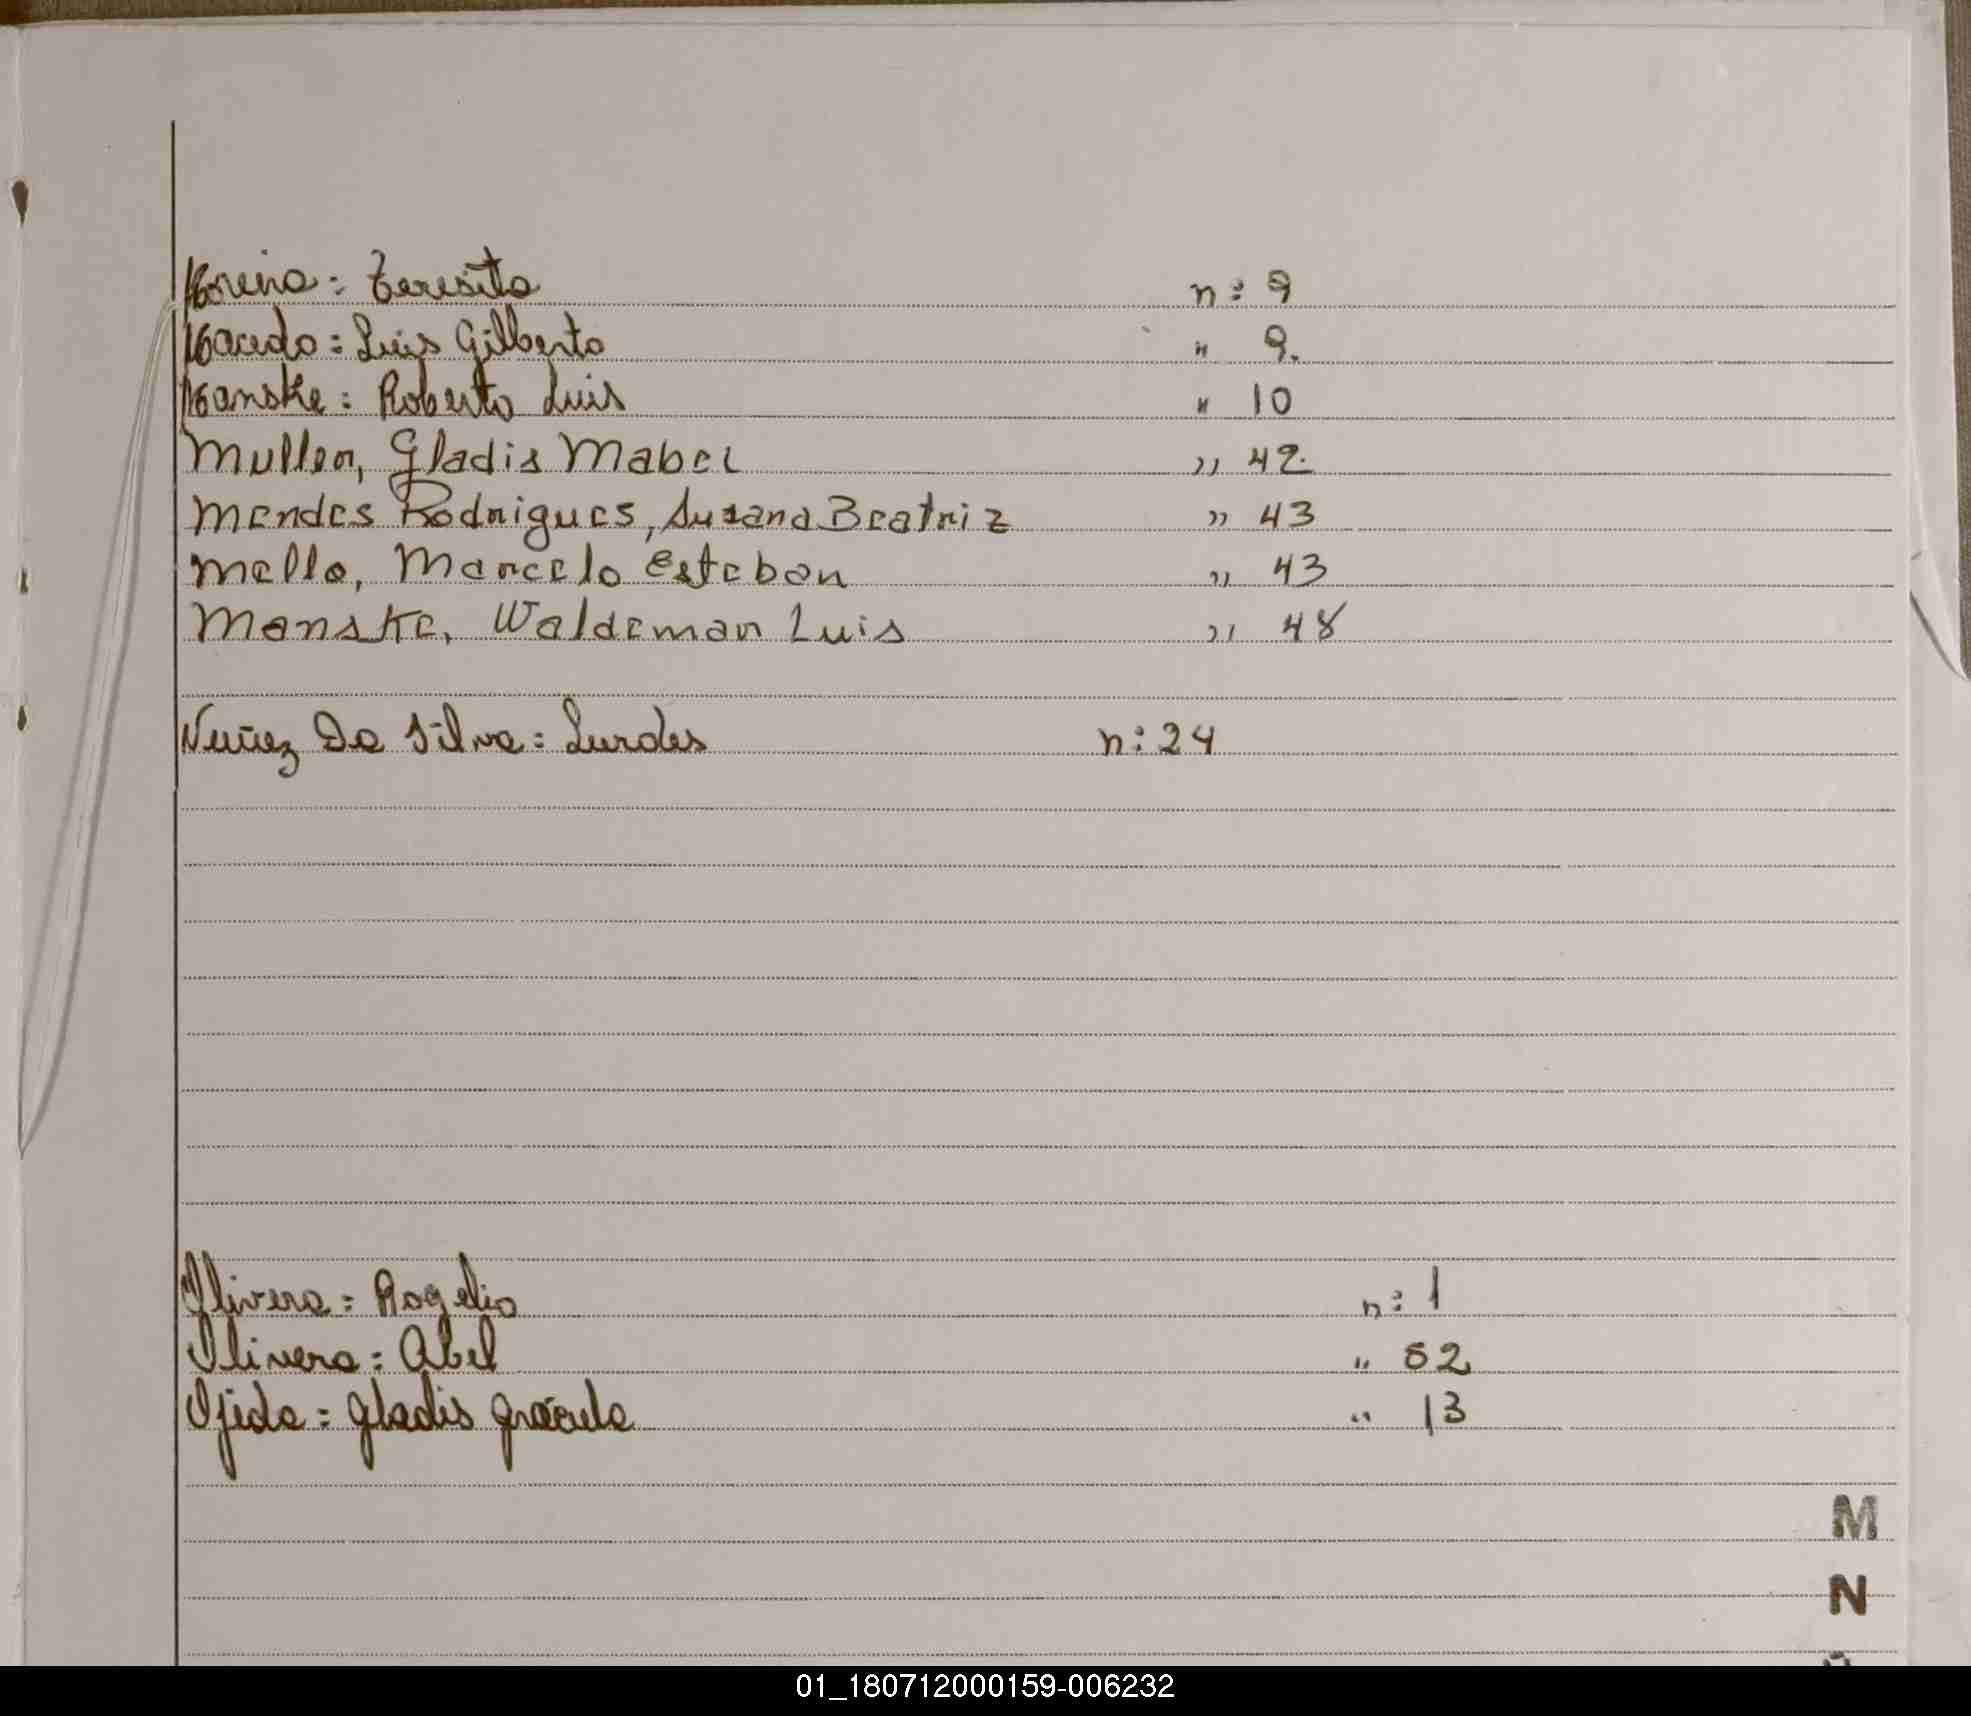 Moreira: Teresita n: 9
Macedo: Luis Gilberto " 9.
Manske: Roberto Luis " 10
Muller, Gladis Mabel " 42
Mendes Rodrigues, Susana Beatriz " 43
Mello, Marcelo Esteban " 43
Manske, Waldemar Luis " 48
Nuñez Da Silva: Lurdes n: 24
Olivera: Rogelio n: 1
Olivera: Abel " 52
Ojeda: Gladis " 13
M
N
01_180712000159-006232